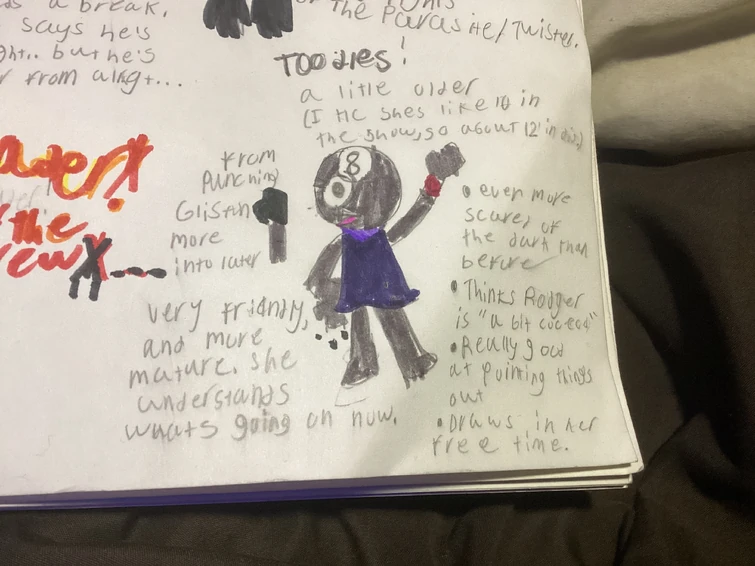 a break,
says he's
but he's
from
or
The Parasite/Twisted.
TOODLES!
a litle older
(I HC shes like 10 in
the show, so about 12 in this)
8
From
Punching
Glisten
more
into later
the
very friendly,
and more
mature. she
understands
whats going on now.
• even more
scared of
the dark than
before
• Thinks Rodger
is "a bit
• Really good
at pointing things
out
• Draws in her
free time.